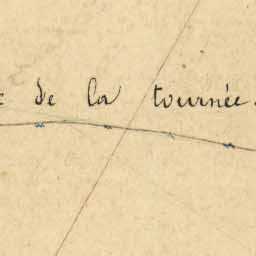 de la tournée